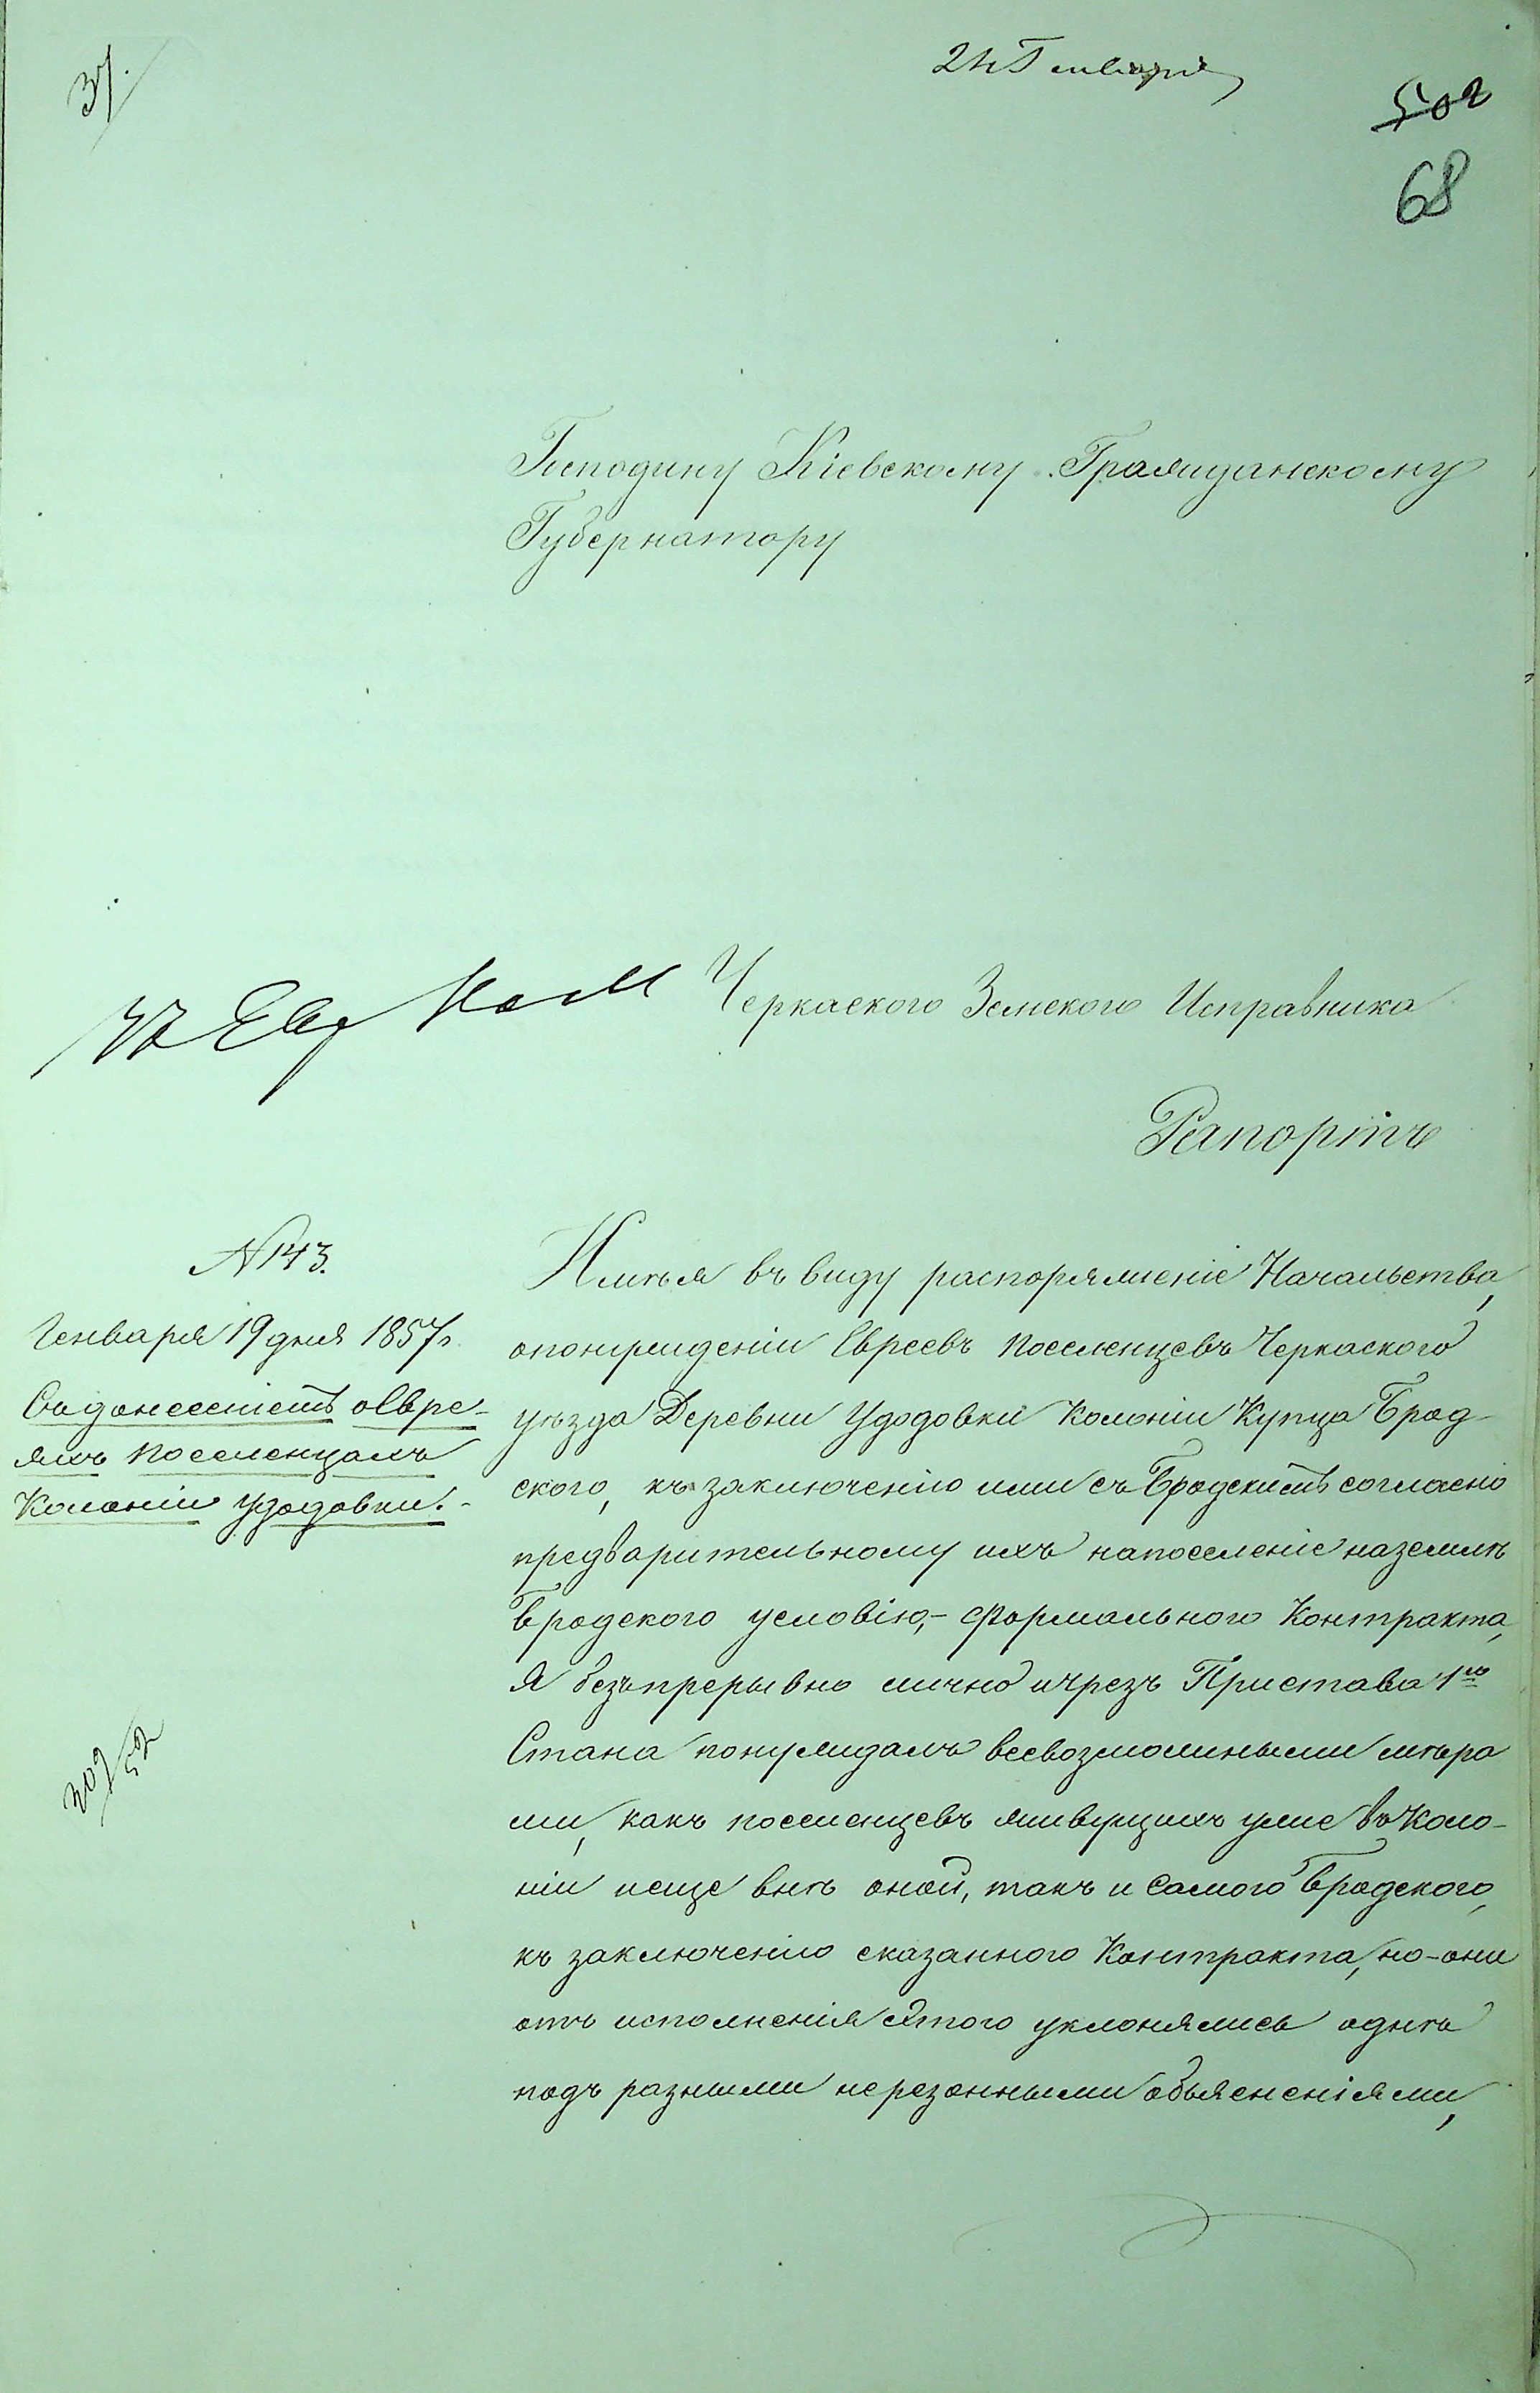 37.
24 Генваря
502
68
Господину Кіевскому Гражданскому
Губернатору
Черкаского Земского Исправника
Рапортъ
N 143.
Генваря 19 дня 1857 г.
Съ донесеніемъ о Евре-
яхъ поселенцахъ
Колоніи Удодовки.
Имѣя въ виду распоряженіе Начальства,
о понужденіи Евреевъ поселенцевъ Черкаского
уѣзда Деревни Удодовки Колоніи Купца Брод-
ского, къ заключенію ими съ Бродскимъ согласно
предварительному ихъ на поселеніе на землѣ
Бродского условію,- формального Контракта,
я безъпрерывно лично и чрезъ Пристава 1го
Стана понуждалъ всевозможными мѣра
ми, какъ поселенцевъ живущихъ уже въ Коло-
ніи и еще внѣ оной, такъ и самого Бродского,
къ заключенію сказанного Контракта, но-они
отъ исполненія этого уклонялись однѣ
подъ разными нерезонными объясненіями,